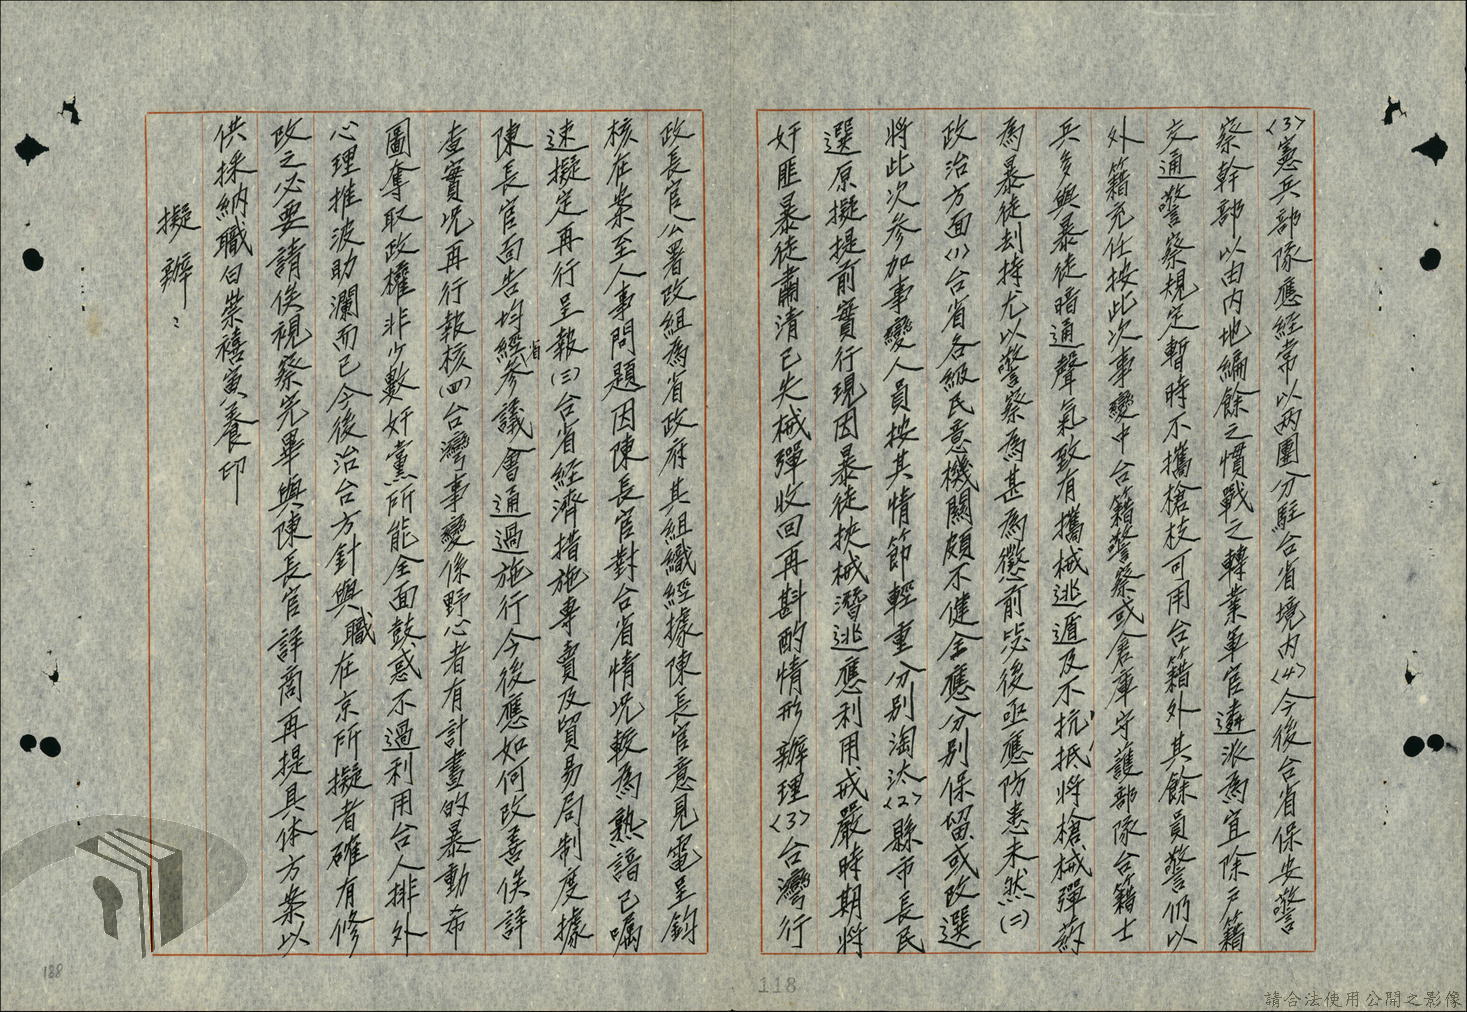 (3)憲兵部隊應經常以兩團分駐台省境內(4)今後台省保安警
察幹部以由內地編餘之慣戰之轉業軍官遴派為宜除戶籍
交通警察規定暫時不攜槍枝可用台籍外其餘員警們以
外籍充任按此次事變中台籍警察或倉庫守護部隊台籍士
兵多與暴徒暗通聲氣致有攜械逃遁及不抗抵將槍械彈葯
為暴徒刦持尤以警察為甚為懲前毖後亟應防患未然(二)
政治方面(1)台省各級民意機關頗不健全應分別保留或改選
將此次參加事變人員按其情節輕重分別淘汰(2)縣市長民
選原擬提前實行現因暴徒挾械潛逃應利用戒嚴時期將
奸匪暴徒肅清已失械彈收回再斟酌情形辦理(3)台灣行
政長官公署改組為省政府其組織經據陳長官意見電呈鈞
核在案至人事問題因陳長官對台省情況較為熟諳已囑
速擬定再行呈報(三)台省經濟措施專賣及貿易局制度據
陳長官面告均經省參議會通過施行今後應如何改善俟詳
查實況再行報核(四)台灣事變係野心者有計畫的暴動希
圖奪取政權非少數奸黨所能全面鼓惑不過利用台人排外
心理推波助瀾而已今後治台方針與職在京所擬者確有修
改之必要請俟視察完畢與陳長官詳商再提具体方案以
供採納職白崇禧寅養印
擬辦：
118
188
請合法使用公開之影像